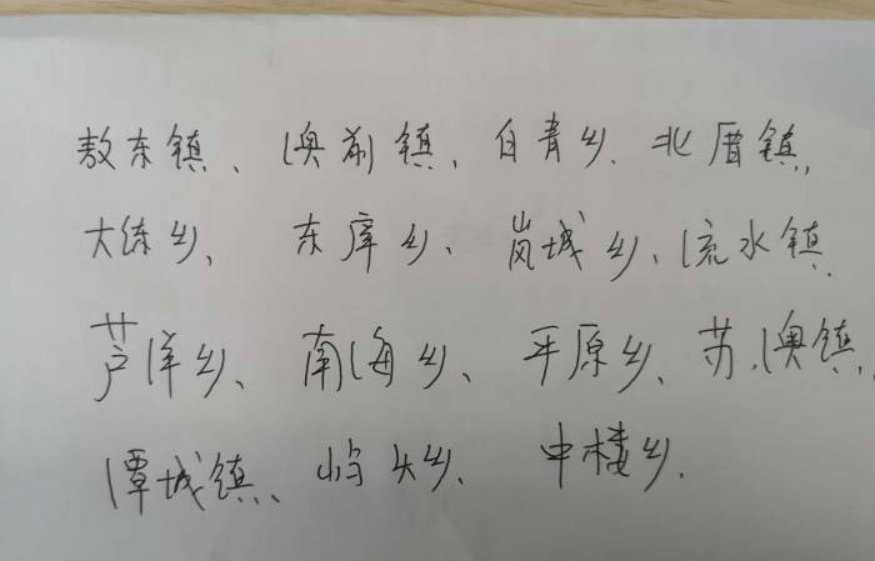 敖东镇、澳前镇、白青乡、北厝镇,
大练乡、东庠乡、岚城乡、流水镇、
芦洋乡、南海乡、平原乡、苏澳镇,
潭城镇、屿头乡、中楼乡.